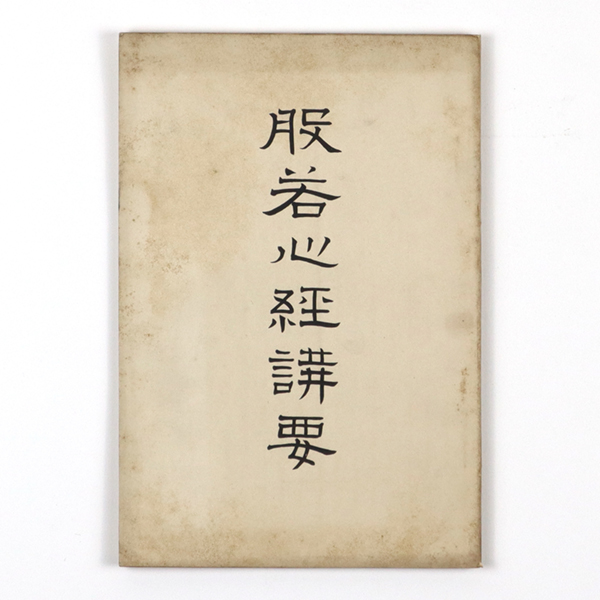 般若心經講要